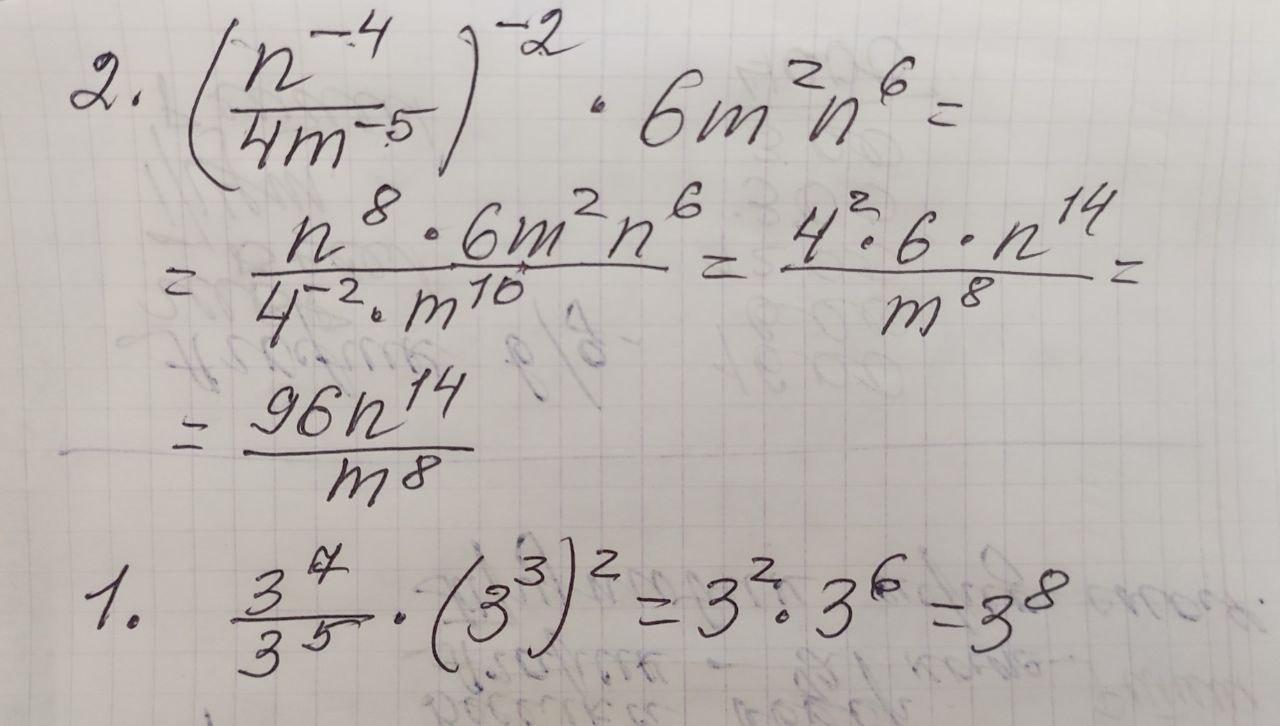 2. (n⁻⁴/4m⁻⁵)⁻² · 6m²n⁶ =
= n⁸ · 6m²n⁶/4⁻² · m¹⁰ = 4² · 6 · n¹⁴/m⁸ =
= 96n¹⁴/m⁸
1. 3⁷/3⁵ · (3³)² = 3² · 3⁶ = 3⁸